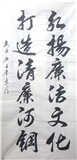 弘揚廉法文化
打造清廉河鋼